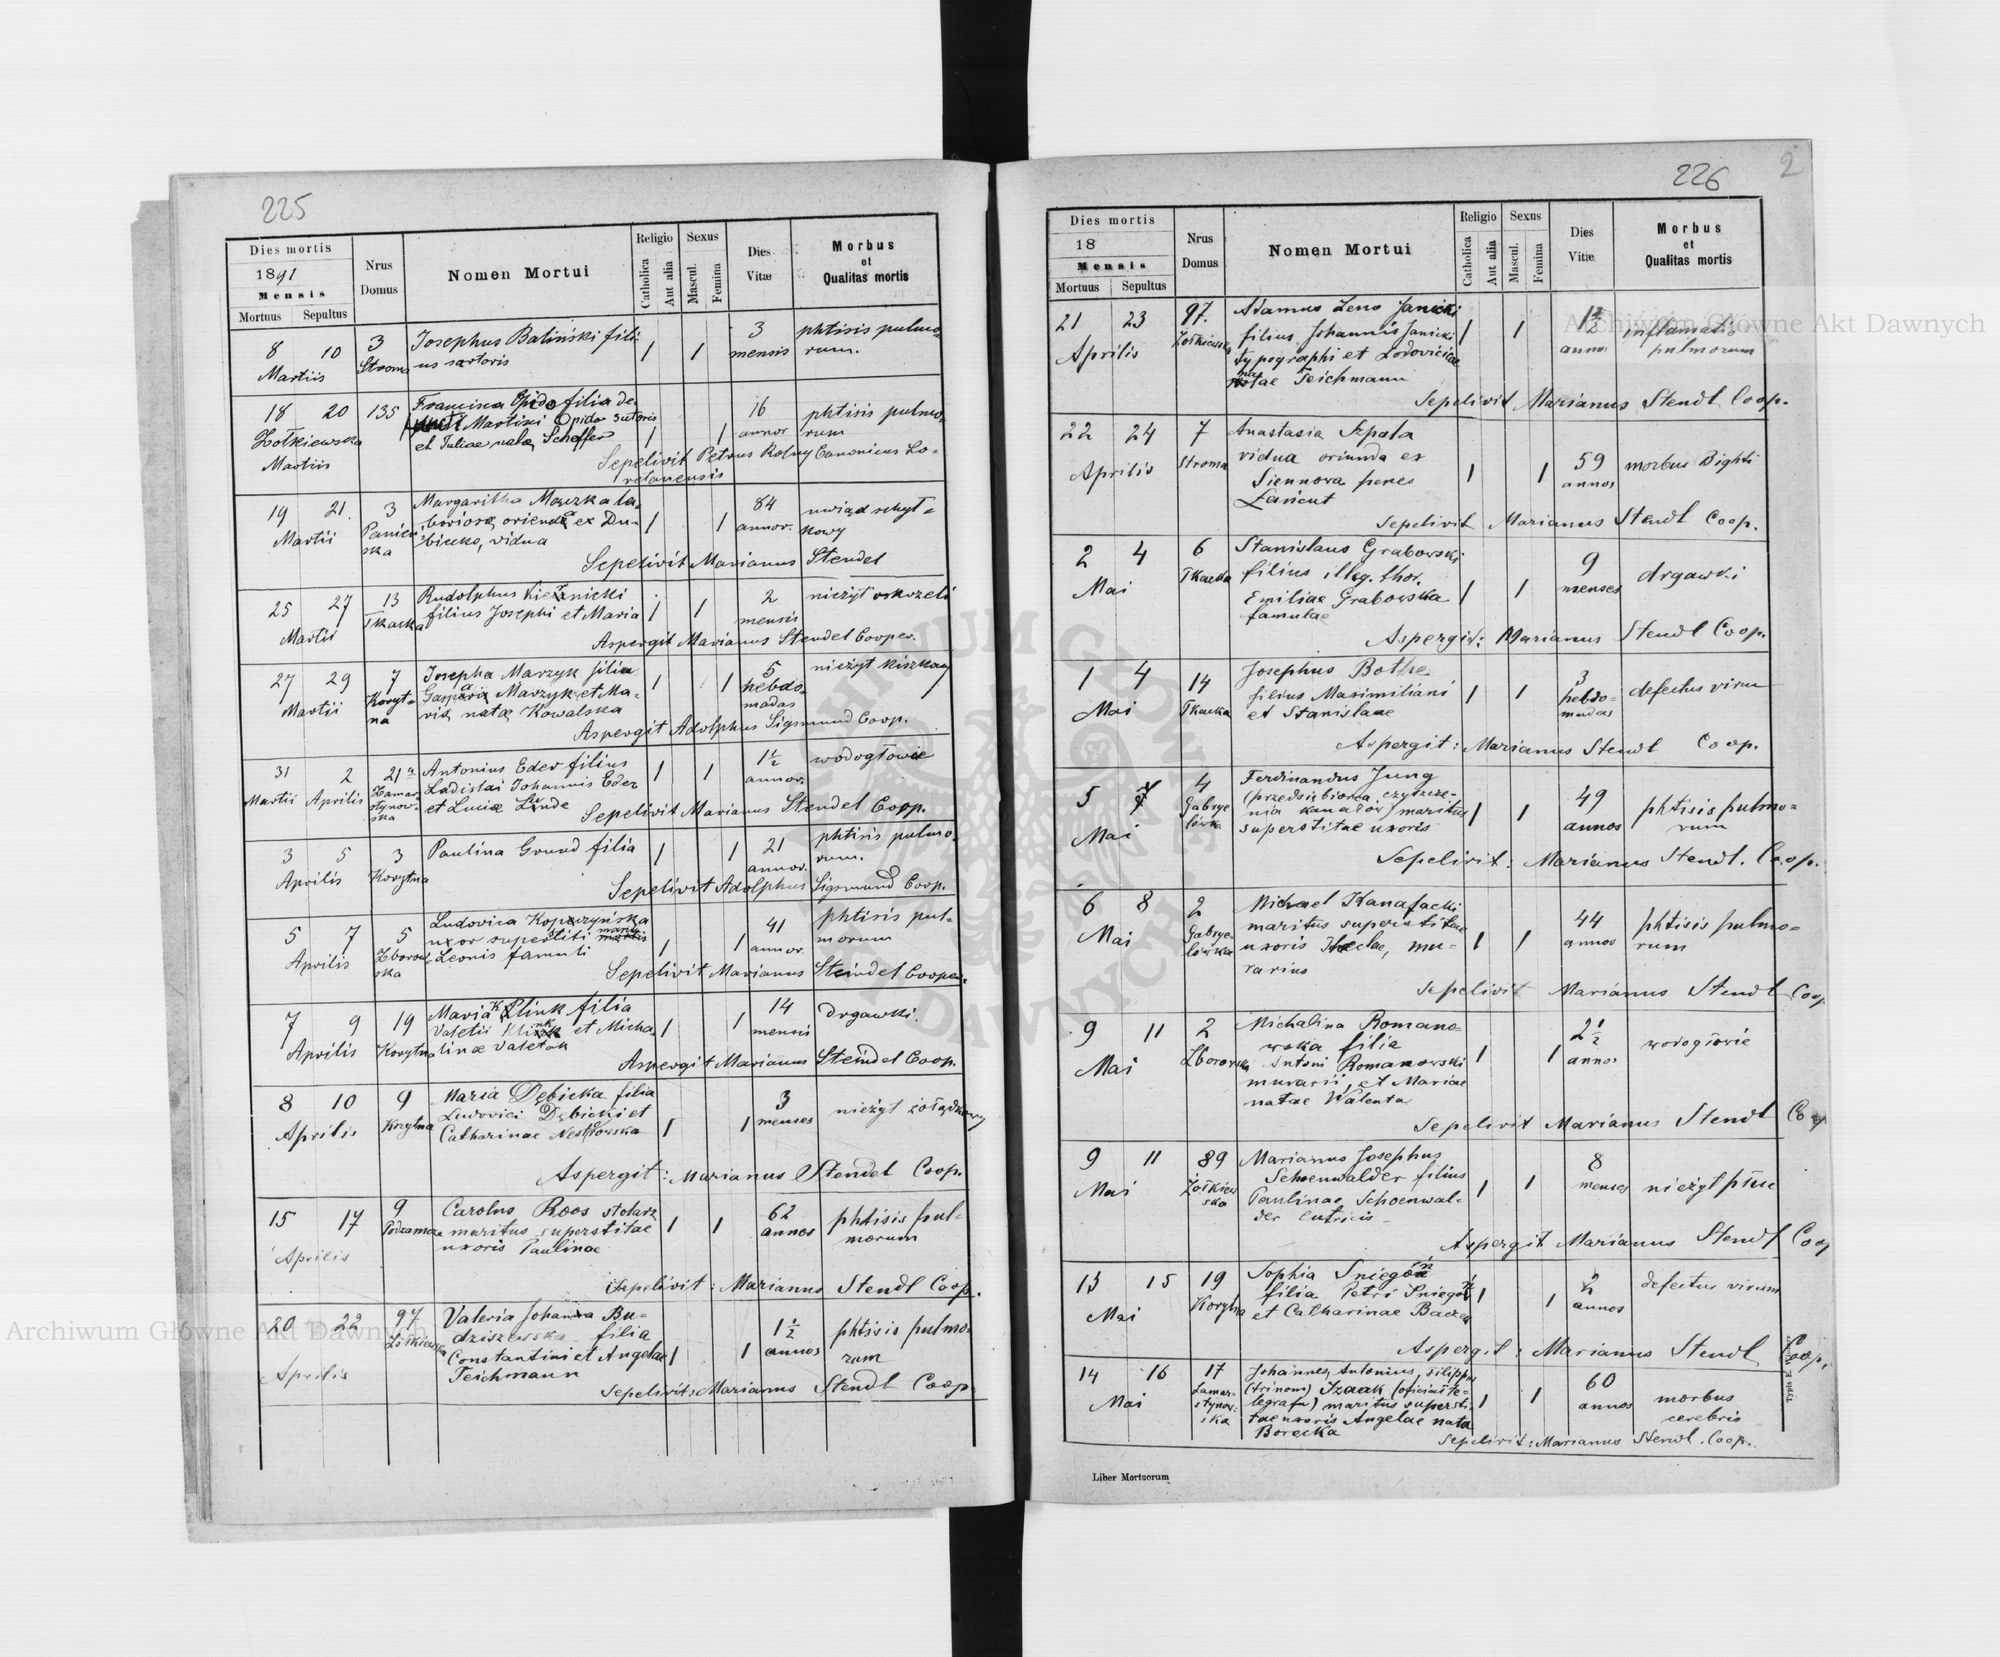 225
Dies mortis
1891
Mensis
Mortuus Sepultus
Nrus Domus
Nomen Mortui
Religio
Catholica
Aut alia
Sexus
Mascul.
Femina
Dies Vitæ
Morbus et Qualitas mortis
8 10 3 Josephus Baliński fili- 1 1 3 phtisis pulmo-
Martiis us sartoris mensis rum.
18 20 135 Francisca Opido filia de- 16 phtisis pulmo-
Żołkiewska Martini Opido sutoris annor. rum
Martiis et Juliae nata Scheffer 1 1
Sepelivit Petrus Rolny Canonicus
19 21. 3 Margaritha la- 84 uwiąd schył-
Martii boriosa ex Du- 1 1 annor. kowy
biecko, vidua
Sepelivit Marianus Stendel
25 27 13 Rudolphus 2 nieżyt oskrzeli
Martii Tkacka filius Josephi et Maria 1 1 mensis
Aspergit Marianus Stendel Cooper.
27 29 7 Josepha Marzyk filia 5 nieżyt kiszkowy
Martii Koryt- Marzyk et Ma- 1 1 hebdo-
na ria nata Kowalska madas
Aspergit Adolphus Sigmund Coop.
31 2 21 Antonius Eder filius 1½ wodogłowie
Martii Aprilis Zamar- Ladislai Johannis Eder 1 1 annor.
stynow- et Luciæ
ska Sepelivit Marianus Stendel Coop.
3 5 3 Paulina Grund filia 1 1 21 phtisis pulmo-
Aprilis Korytna annor. rum.
Sepelivit Adolphus Sigmund Coop.
5 7 5 Ludovica 41 phtisis pul-
Aprilis Zborow- uxor superstiti 1 1 annor. morum
ska Leonis famuli
Sepelivit Marianus Stendel Cooper.
7 9 19 Maria Klink filia 14 drgawki.
Aprilis Korytna et Micha- 1 1 mensis
linæ
Aspergit Marianus Stendel Coop.
8 10 9 Maria Dębicka filia 3 nieżyt żołądkowy
Aprilis Korytna Ludovici Dębicki et menses
Catharinae 1 1
Aspergit: Marianus Stendel Coop.
15 17 9 Carolus Roos stolarz 62 phtisis pul-
Aprilis Podzamcze maritus superstitae 1 1 annos morum
uxoris Paulinae
Sepelivit: Marianus Stendl Coop.
20 22 97 Valeria Johanna Bu- 1½ phtisis pulmo-
Aprilis Żółkiewska dziszewska filia annos rum
Constantini et Angelae 1 1
Teichmann
Sepelivit: Marianus Stendl Coop
226
2
Dies mortis
18
Mensis
Mortuus Sepultus
Nrus Domus
Nomen Mortui
Religio
Catholica
Aut alia
Sexus
Mascul.
Femina
Dies Vitæ
Morbus et Qualitas mortis
21 23 97. Adamus Janicki
Aprilis Żółkiewska filius Johannis Janicki 1 1 annos inflamatio
typographi et Lodovicae pulmorum
natae Teichmann
Sepelivit Marianus Stendl Coop.
22 24 7 Anastasia Szpala
Aprilis Stroma vidua oriunda ex 1 1 59 morbus Bighti
Siennowa penes annos
Łańcut
Sepelivit Marianus Stendl Coop.
2 4 6 Stanislaus Grabowski 9
Mai Tkacka filius illeg. thor. menses drgawki
Emiliae Grabowska 1 1
famulae
Aspergit: Marianus Stendl Coop.
1 4 14 Josephus Bothe 3
Mai Tkacka filius Maximiliani 1 1 hebdo- defectus virum
et Stanislaae madas
Aspergit: Marianus Stendl Coop.
5 7 4 Ferdinandus Jung 49
Mai Gabrye- (przedsiębiorca czyszcze- phtisis pulmo-
lówka nia kanałów) maritus 1 1 annos rum
superstitae uxoris
Sepelivit: Marianus Stendl. Coop.
6 8 2 Michael Kanafacki 44 phtisis pulmo-
Mai Gabrye- maritus superstitae annos rum
lówka uxoris Theclae, mu- 1 1
rarius
Sepelivit Marianus Stendl Coop.
9 11 2 Michalina Romano- 2½
Mai Zborowska wska filia 1 1 annos wodogłowie
Antoni Romanowski
murarii, et Mariae
natae Walenta
Sepelivit Marianus Stendl Coop
9 11 89 Marianus Josephus 8
Mai Żółkiew- Schoenwalder filius 1 1 menses nieżyt płuc
ska Paulinae Schoenwal-
der
Aspergit Marianus Stendl Coop
13 15 19 Sophia Śniegoń 2 defectus virum
Mai Korytna filia Petri Śniegoń 1 1 annos
et Catharinae
Aspergit: Marianus Stendl Coop.
14 16 17 Johannes, Antonius, Filippus 60
Mai Zamar- (trinom) Izaak (oficiał te- 1 1 annos morbus
stynow- legrafu) maritus supersti- cerebris
ska tae uxoris Angelae nata
Borecka
Sepelivit: Marianus Stendl. Coop.
Liber Mortuorum
Archiwum Główne Akt Dawnych
Archiwum Główne Akt Dawnych